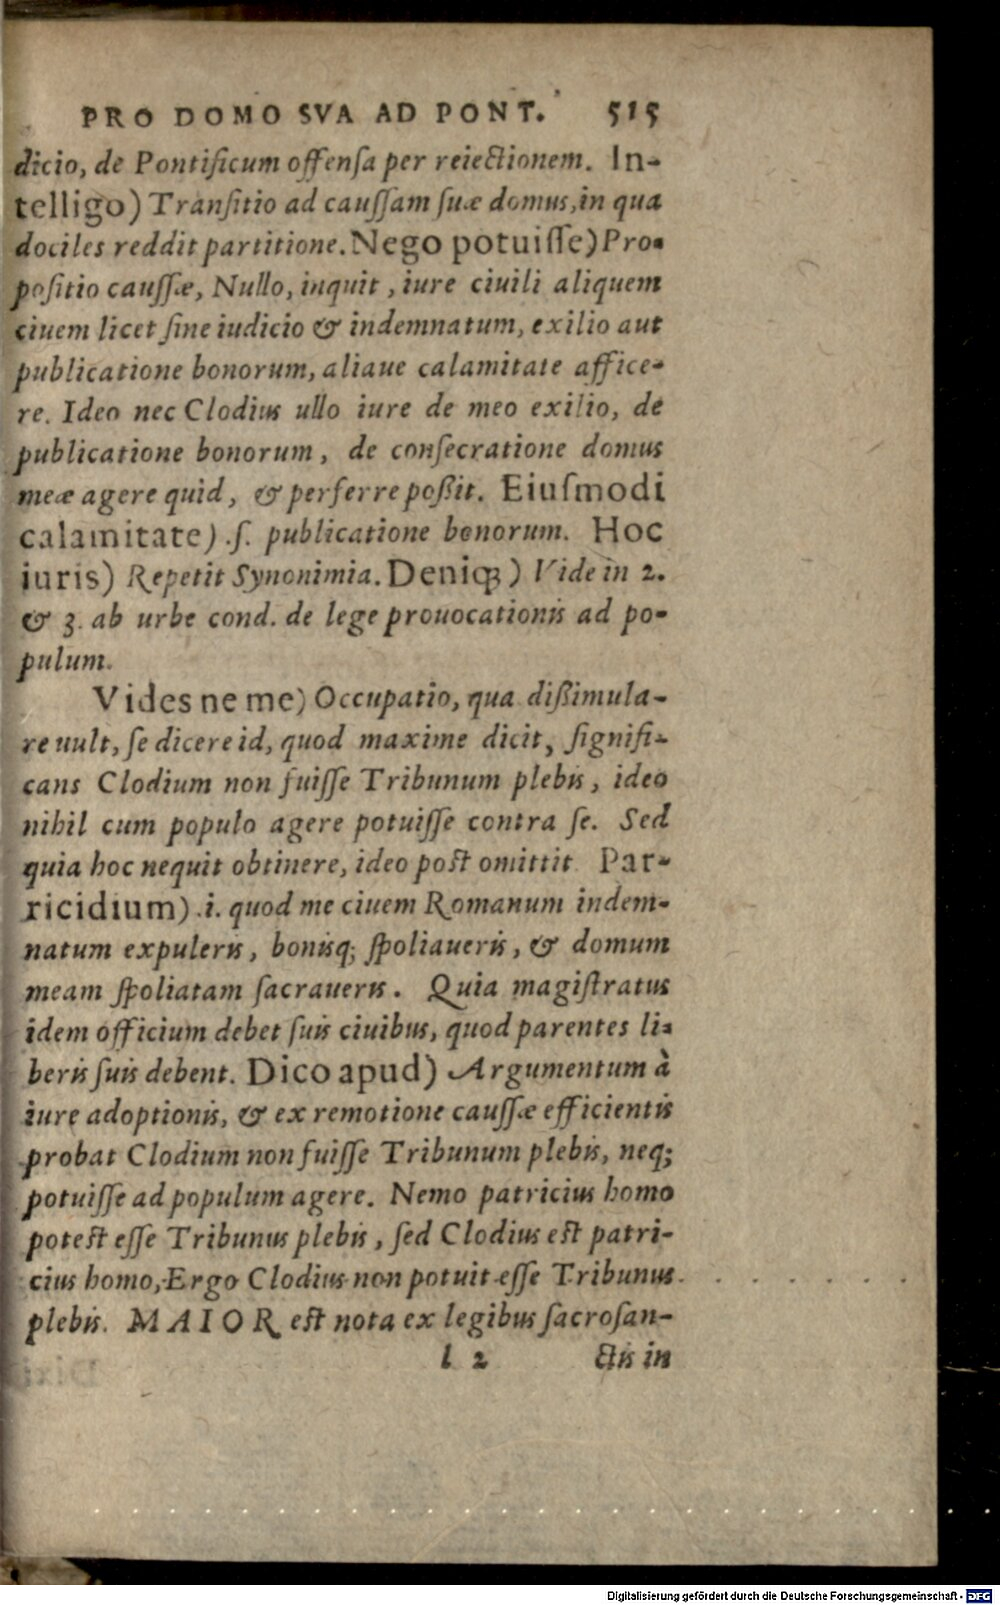 PRO DOMO SVA AD PONT. 515
dicio, de Pontificum offenſa per reiectionem. In-
telligo) Tranſitio ad cauſſam ſuæ domus, in qua
dociles reddit partitione. Nego potuiſſe) Pro-
poſitio cauſſæ, Nullo, inquit, iure ciuili aliquem
ciuem licet ſine iudicio & indemnatum, exilio aut
publicatione bonorum, aliaue calamitate affice-
re. Ideo nec Clodius ullo iure de meo exilio, de
publicatione bonorum, de conſecratione domus
meæ agere quid, & perferre poßit. Eiuſmodi
calamitate) .ſ. publicatione bonorum. Hoc
iuris) Repetit Synonimia. Deniqꝫ) Vide in 2.
& 3. ab urbe cond. de lege prouocationis ad po-
pulum.
Vides ne me) Occupatio, qua dißimula-
re uult, ſe dicere id, quod maxime dicit, ſignifi-
cans Clodium non fuiſſe Tribunum plebis, ideo
nihil cum populo agere potuiſſe contra ſe. Sed
quia hoc nequit obtinere, ideo poſt omittit. Par-
ricidium) .i. quod me ciuem Romanum indem-
natum expuleris, bonisq; ſpoliaueris, & domum
meam ſpoliatam ſacraueris. Quia magiſtratus
idem officium debet ſuis ciuibus, quod parentes li-
beris ſuis debent. Dico apud) Argumentum à
iure adoptionis, & ex remotione cauſſæ efficientis
probat Clodium non fuiſſe Tribunum plebis, neq;
potuiſſe ad populum agere. Nemo patricius homo
poteſt eſſe Tribunus plebis, ſed Clodius eſt patri-
cius homo, Ergo Clodius non potuit eſſe Tribunus
plebis. MAIOR eſt nota ex legibus ſacroſan-
l 2 ctis in
Digitalisierung gefördert durch die Deutsche Forschungsgemeinschaft - DFG